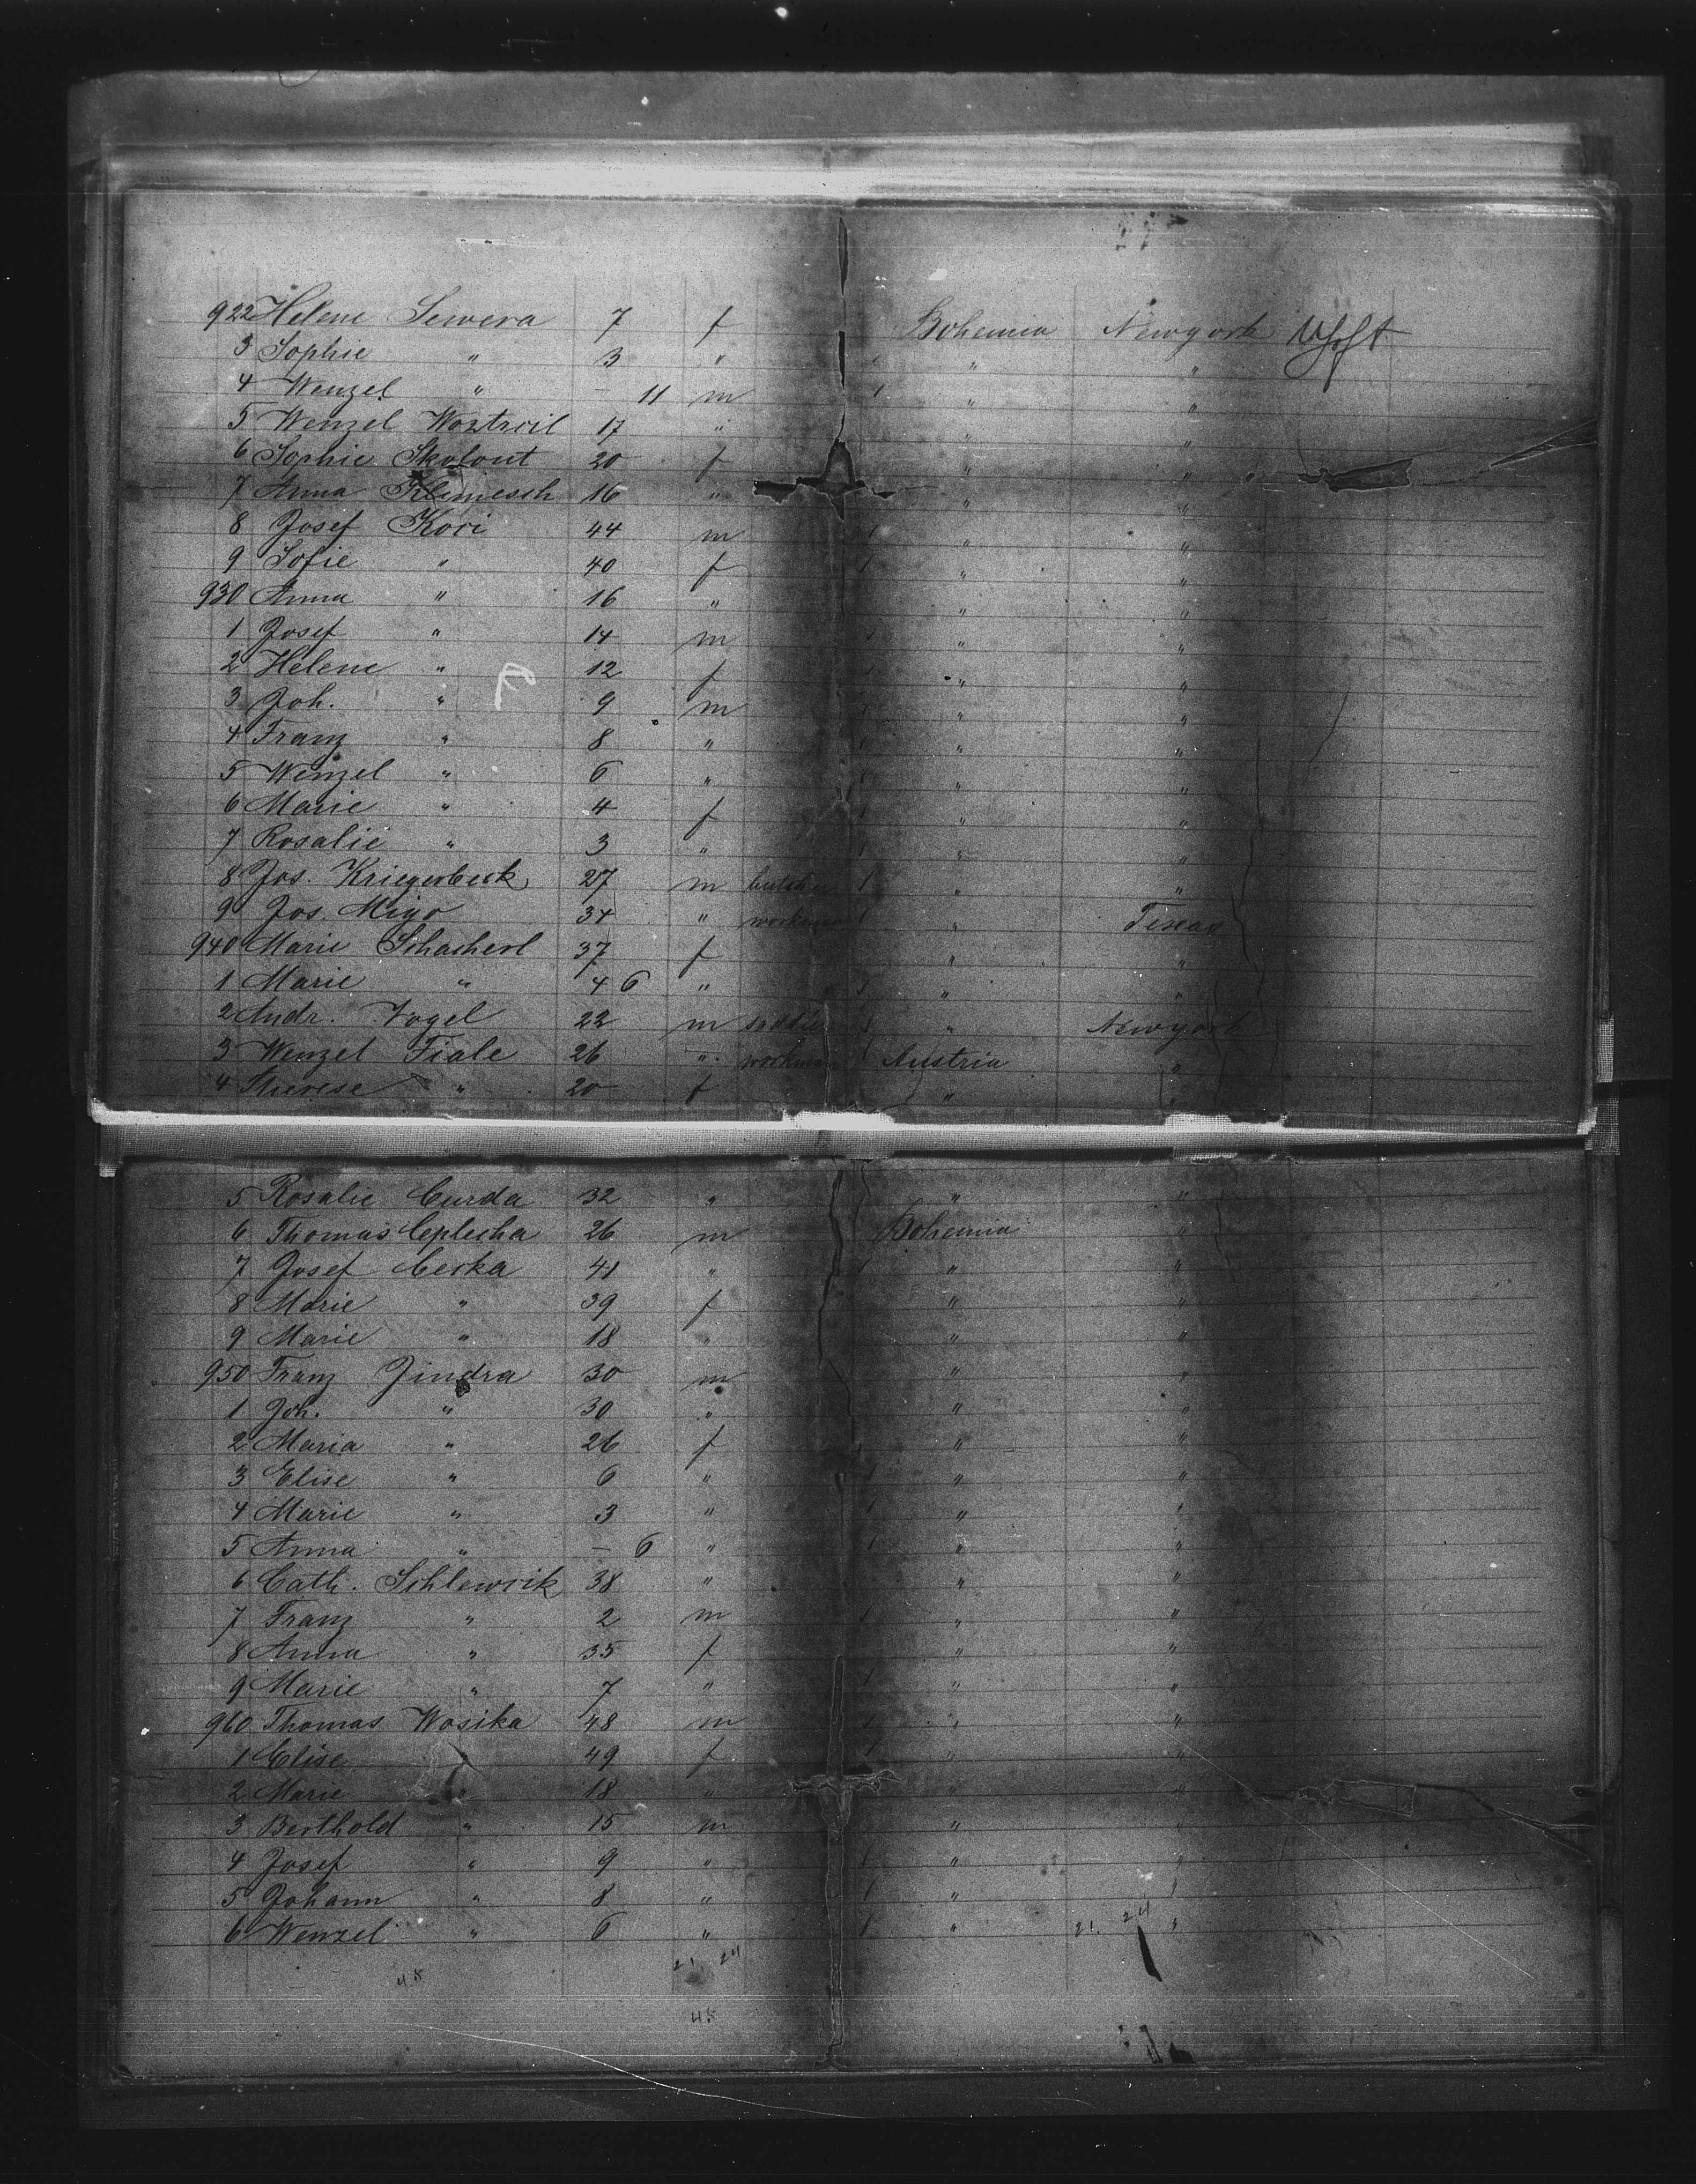 922 Helene Sewera 7 f Bohemia Newyork
3 Sophie " 3 " " "
4 Wenzel " - 11 m 1 " "
5 Wenzel Woztrcil 17 " " "
6 Sophie Skolout 20 f " "
7 Anna Klimesch 16 " " "
8 Josef Kori 44 m 1 " "
9 Sofie " 40 f 1 " "
930 Anna " 16 " " "
1 Josef " 14 m 1 " "
2 Helene " 12 f 1 " "
3 Joh. " 9 m 1 " "
4 Franz " 8 " 1 " "
5 Wenzel " 6 " 1 " "
6 Marie " 4 f 1 " "
7 Rosalie " 3 " 1 " "
8 Jos. Kriegerbeck 27 m butcher 1 " "
9 Jos. Migo 34 " workman 1 " Texas
940 Marie Schacherl 37 f " "
1 Marie " 4 6 " 1 " "
2 Andr. Vogel 22 m saddler 1 " Newyork
3 Wenzel Fiale 26 " workman 1 Austria "
4 Therese " 20 f " "
5 Rosalie Curda 32 " " "
6 Thomas Ceplecha 26 m Bohemia "
7 Josef Ceska 41 " 1 " "
8 Marie " 39 f " "
9 Marie " 18 " " "
950 Franz Jindra 30 m " "
1 Joh. " 30 " " "
2 Maria " 26 f " "
3 Elise " 6 " 1 " "
4 Marie " 3 " 1 " "
5 Anna " - 6 " 1 " "
6 Cath. Schlewcik 38 " " "
7 Franz " 2 m 1 " "
8 Anna " 35 f " "
9 Marie " 7 " 1 " "
960 Thomas Wosika 48 m 1 " "
1 Elise " 49 f 1 " "
2 Marie " 18 " " "
3 Berthold " 15 m " "
4 Josef " 9 " 1 " "
5 Johann " 8 " 1 " "
6 Wenzel " 6 " 1 " 21. 24 "
21. 24
45
45